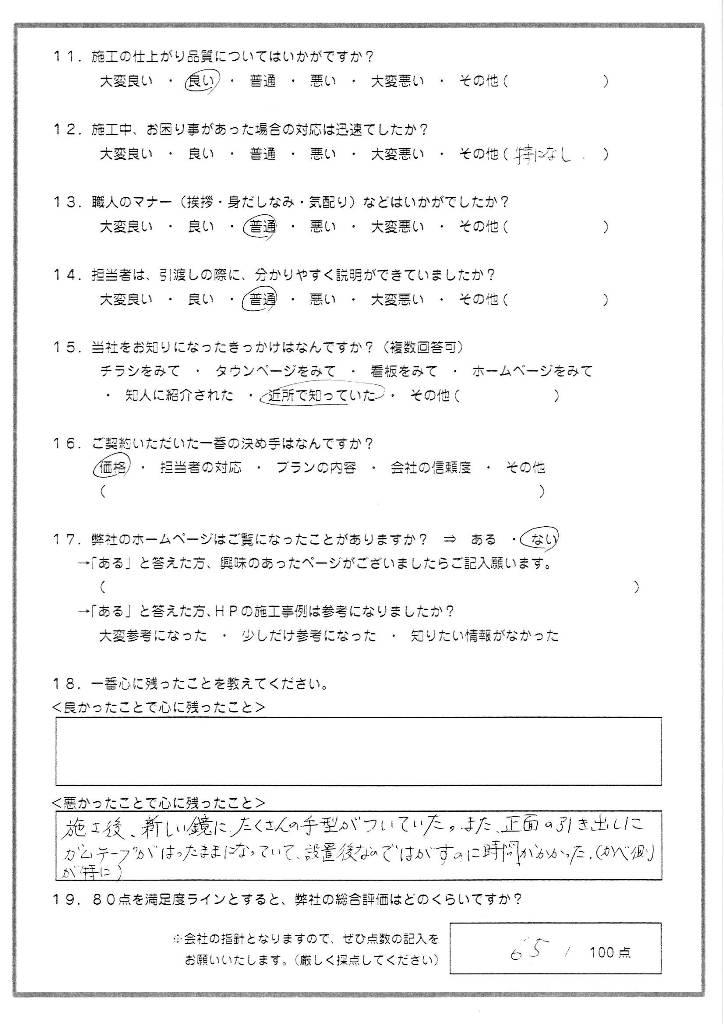 11．施工の仕上がり品質についてはいかがですか？
大変良い ・ 良い ・ 普通 ・ 悪い ・ 大変悪い ・ その他（　　　　　　）
12．施工中、お困り事があった場合の対応は迅速でしたか？
大変良い ・ 良い ・ 普通 ・ 悪い ・ 大変悪い ・ その他（ 特になし ）
13．職人のマナー（挨拶・身だしなみ・気配り）などはいかがでしたか？
大変良い ・ 良い ・ 普通 ・ 悪い ・ 大変悪い ・ その他（　　　　　　）
14．担当者は、引渡しの際に、分かりやすく説明ができていましたか？
大変良い ・ 良い ・ 普通 ・ 悪い ・ 大変悪い ・ その他（　　　　　　）
15．当社をお知りになったきっかけはなんですか？（複数回答可）
チラシをみて ・ タウンページをみて ・ 看板をみて ・ ホームページをみて
・ 知人に紹介された ・ 近所で知っていた ・ その他（　　　　　　）
16．ご契約いただいた一番の決め手はなんですか？
価格 ・ 担当者の対応 ・ プランの内容 ・ 会社の信頼度 ・ その他
（　　　　　　　　　　　　　　　　　　）
17．弊社のホームページはご覧になったことがありますか？ ⇒ ある ・ ない
→「ある」と答えた方、興味のあったページがございましたらご記入願います。
（　　　　　　　　　　　　　　　　　　　　　　）
→「ある」と答えた方、HPの施工事例は参考になりましたか？
大変参考になった ・ 少しだけ参考になった ・ 知りたい情報がなかった
18．一番心に残ったことを教えてください。
＜良かったことで心に残ったこと＞
＜悪かったことで心に残ったこと＞
施工後、新しい鏡に、たくさんの手型がついていた。また、正面の引き出しに
ガムテープがはったままになっていて、設置後なのではがすのに時間がかかった。（かべ側）
が特に）
19．80点を満足度ラインとすると、弊社の総合評価はどのくらいですか？
※会社の指針となりますので、ぜひ点数の記入を
お願いいたします。（厳しく採点してください）
65 / 100点